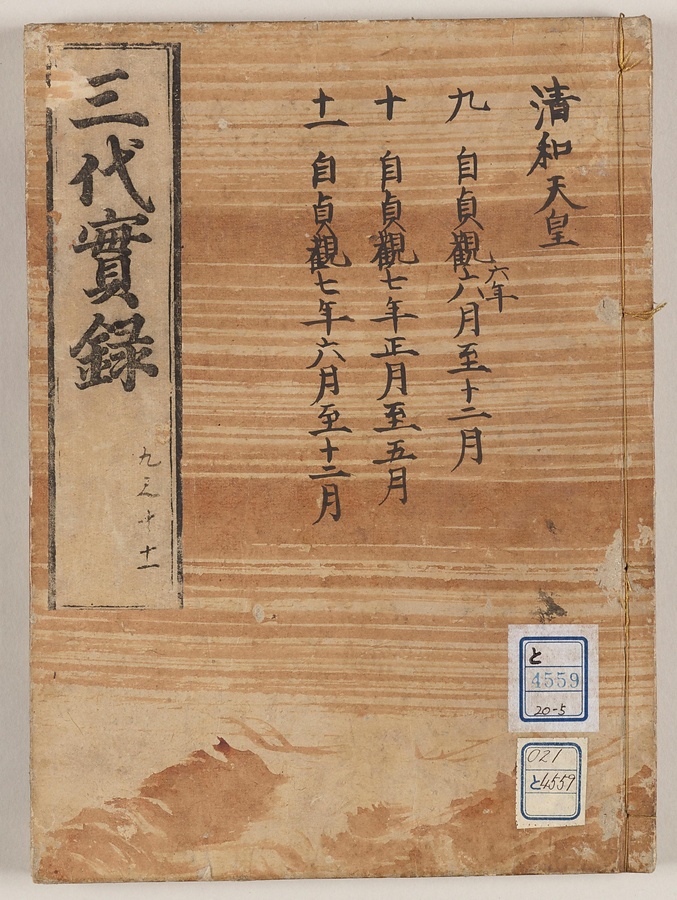 清和天皇
九 自貞觀六年六月至十二月
十 自貞觀七年正月至五月
十一 自貞觀七年六月至十二月
三代實録
九之十一
と
4559
20-5
021
と4559